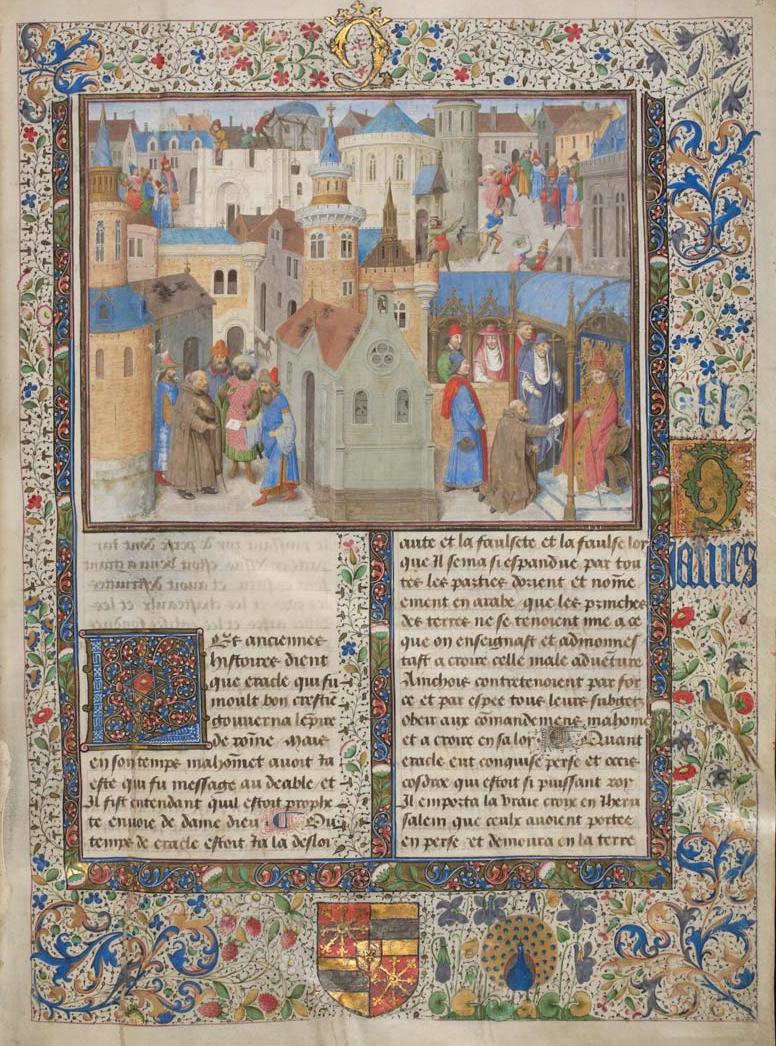 Les anciennes
hystoires dient
que eracle qui fu
moult bon crestiē
gouverna lēpire
de rōme. Mais
en son temps mahomet avoit ia
este qui fu message au deable et
Il fist entendant quil estoit prophe
te envoie de dame dieu. Ou
temps de eracle estoit ia la desloi
aute et la faulsete et la faulse loy
que Il sema si espandue par tou
tes les parties dorient et nōme
ement en arabe que les princhez
des terres ne se tenoient mie a ce
que on enseignast et admones
tast a croire celle male advēture
Ainchois contretenoient par for
ce et par espee tous leurs subgez
obeir aux cōmandemens mahome
et a croire en sa loy. Quant
eracle eut conquise perse et occis
cosdroe qui estoit si puissant roy
Il emporta la vraie croix en Iheru
salem que ceulx avoient portee
en perse et demoura en la terre
James